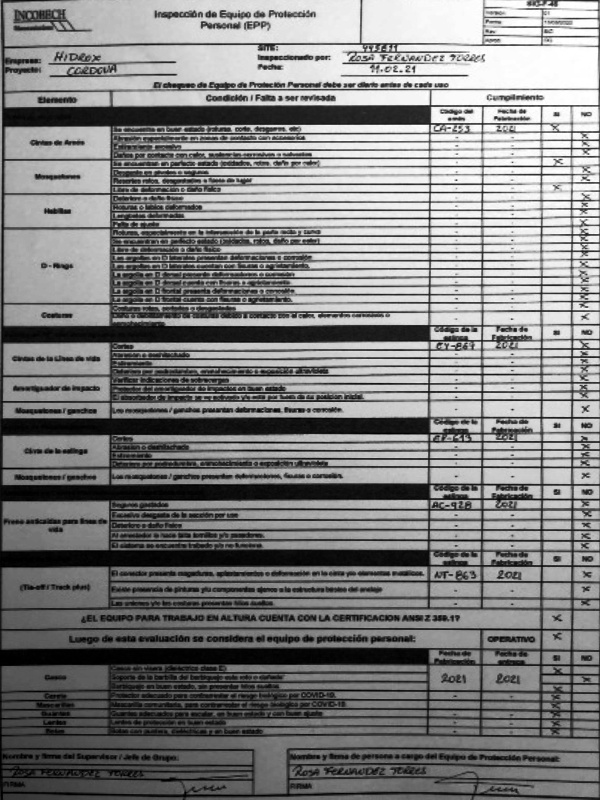 INCOBECH
Inspección de Equipo de Protección
Personal (EPP)
SIG-F-46
01
SIG
Empresa: HIDROX
Proyecto: CORDOVA
SITE: 445811
Inspeccionado por: ROSA FERNANDEZ TORRES
Fecha: 11.02.21
El chequeo de Equipo de Protección Personal debe ser diario antes de cada uso
Elemento Condición / Falta a ser revisada Cumplimiento
Código del arnés Fecha de Fabricación SI NO
Cintas de Arnés
Se encuentra en buen estado (roturas, corte, desgarros, etc) CA-253 2021 X
Abrasión especialmente en zonas de contacto con accesorios - - X
Estiramiento excesivo - - X
Daños por contacto con calor, sustancias corrosivas o solventes - - X
Mosquetones
Se encuentran en perfecto estado (oxidados, rotos, daño por calor) - - X
Desgaste en pivotes o seguros - - X
Resortes rotos, desgastados o fuera de lugar - - X
Hebillas
Libre de deformación o daño físico - - X
Deterioro o daño físico - - X
Roturas o lados deformados - - X
Lengüetas deformadas - - X
Falta de ajuste - - X
D - Rings
Roturas, especialmente en la intersección de la parte recta y curva - - X
Se encuentran en perfecto estado (oxidados, rotos, daño por calor) - - X
Libre de deformación o daño físico - - X
Las argollas en D laterales presentan deformaciones o corrosión - - X
Las argollas en D laterales cuentan con fisuras o agrietamiento. - - X
La argolla en D dorsal presenta deformaciones o corrosión - - X
La argolla en D dorsal cuenta con fisuras o agrietamiento - - X
La argolla en D frontal presenta deformaciones o corrosión. - - X
La argolla en D frontal cuenta con fisuras o agrietamiento. - - X
Costuras
Costuras rotas, cortadas o desgastadas - - X
Daño o debilitamiento de costuras debido a contacto con el calor, elementos corrosivos o
Código de la eslinga Fecha de Fabricación SI NO
Cintas de la Línea de vida
Cortes EY-867 2021 X
Abrasión o deshilachado - - X
Estiramiento - - X
Deterioro por podredumbre, enmohecimiento o exposición ultravioleta - - X
Amortiguador de impacto
Verificar indicaciones de sobrecargas - - X
Protector del amortiguador de impactos en buen estado - - X
El absorbedor de impacto se ve activado y/o está por fuera de su posición inicial. - - X
Mosquetones / ganchos Los mosquetones / ganchos presentan deformaciones, fisuras o corrosión. - - X
Código de la eslinga Fecha de Fabricación SI NO
Cinta de la eslinga
Cortes 2021 X
Abrasión o deshilachado - - X
Estiramiento - - X
Deterioro por podredumbre, enmohecimiento o exposición ultravioleta - - X
Mosquetones / ganchos Los mosquetones / ganchos presentan deformaciones, fisuras o corrosión. - - X
Código de la eslinga Fecha de Fabricación SI NO
Freno anticaídas para línea de vida
Seguros gastados AC-928 2021 X
Excesivo desgaste de la sección por uso - - X
Deterioro o daño físico - - X
Al arrestador le hace falta tornillos y/o pasadores. - - X
El sistema se encuentra trabado y/o no funciona. - - X
Código de la eslinga Fecha de Fabricación SI NO
(Tie-off / Track plus)
El conector presenta rasgaduras, aplastamientos o deformación en la cinta y/o elementos metálicos. NT-863 2021 X
Existe presencia de pinturas y/o componentes ajenos a la estructura básica del anclaje - - X
Las uniones y/o las costuras presentan hilos sueltos. - - X
¿EL EQUIPO PARA TRABAJO EN ALTURA CUENTA CON LA CERTIFICACION ANSI Z 359.1? X
Luego de esta evaluación se considera el equipo de protección personal: OPERATIVO X
Fecha de Fabricación Fecha de entrega SI NO
Casco
Casco sin visera (dieléctrico clase E) X
Soporte de la barbilla del barbiquejo está roto o dañado 2021 2021 X
Barbiquejo en buen estado, sin presentar hilos sueltos X
Careta Protector adecuado para contrarrestar el riesgo biológico por COVID-19. - - X
Mascarillas Mascarilla comunitaria, para contrarrestar el riesgo biológico por COVID-19. - - X
Guantes Guantes adecuados para escalar, en buen estado y con buen ajuste - - X
Lentes Lentes de protección en buen estado - - X
Botas Botas con puntera, dieléctricas y en buen estado - - X
Nombre y firma del Supervisor / Jefe de Grupo: Nombre y firma de persona a cargo del Equipo de Protección Personal:
ROSA FERNANDEZ TORRES ROSA FERNANDEZ TORRES
FIRMA FIRMA